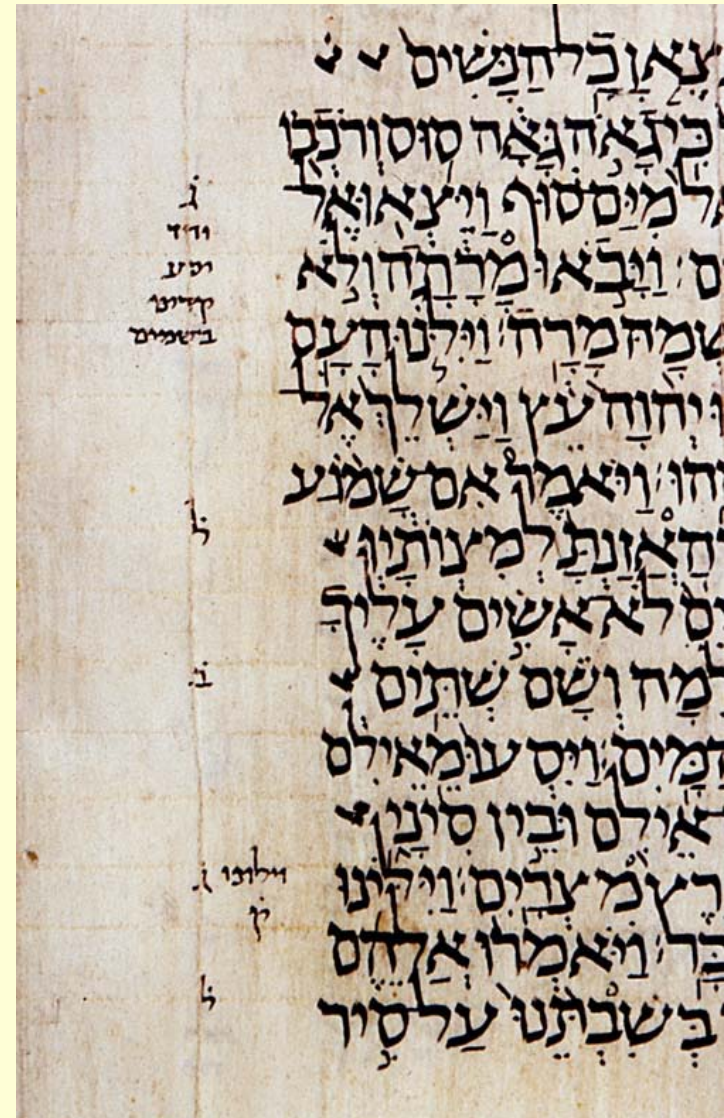 צֵאןָ כָל הַנָּשִׁים
כִּי גָאֹה גָּאָה סוּס וְרֹכְבוֹ
מִיַּם סוּף וַיֵּצְאוּ אֶל
וַיָּבֹאוּ מָרָתָה וְלֹא
שְׁמָהּ מָרָה׃ וַיִּלֹּנוּ הָעָם
יְהוָה עֵץ וַיַּשְׁלֵךְ אֶל
הוּ׃ וַיֹּאמֶר אִם שָׁמוֹעַ
הַאֲזַנְתָּ לְמִצְוֹתָיו
לֹא אָשִׂים עָלֶיךָ
לִמָה וְשָׁם שְׁתֵּים
הַמָּיִם׃ וַיִּסְעוּ מֵאֵילִם
אֵילִם וּבֵין סִינָי
רֶץ מִצְרָיִם׃ וַיִּלִּינוּ
בָּר׃ וַיֹּאמְרוּ אֲלֵהֶם
בְּשִׁבְתֵּנוּ עַל סִיר
ג
בשמים
ל
ב
וילונו ג
ק
ל